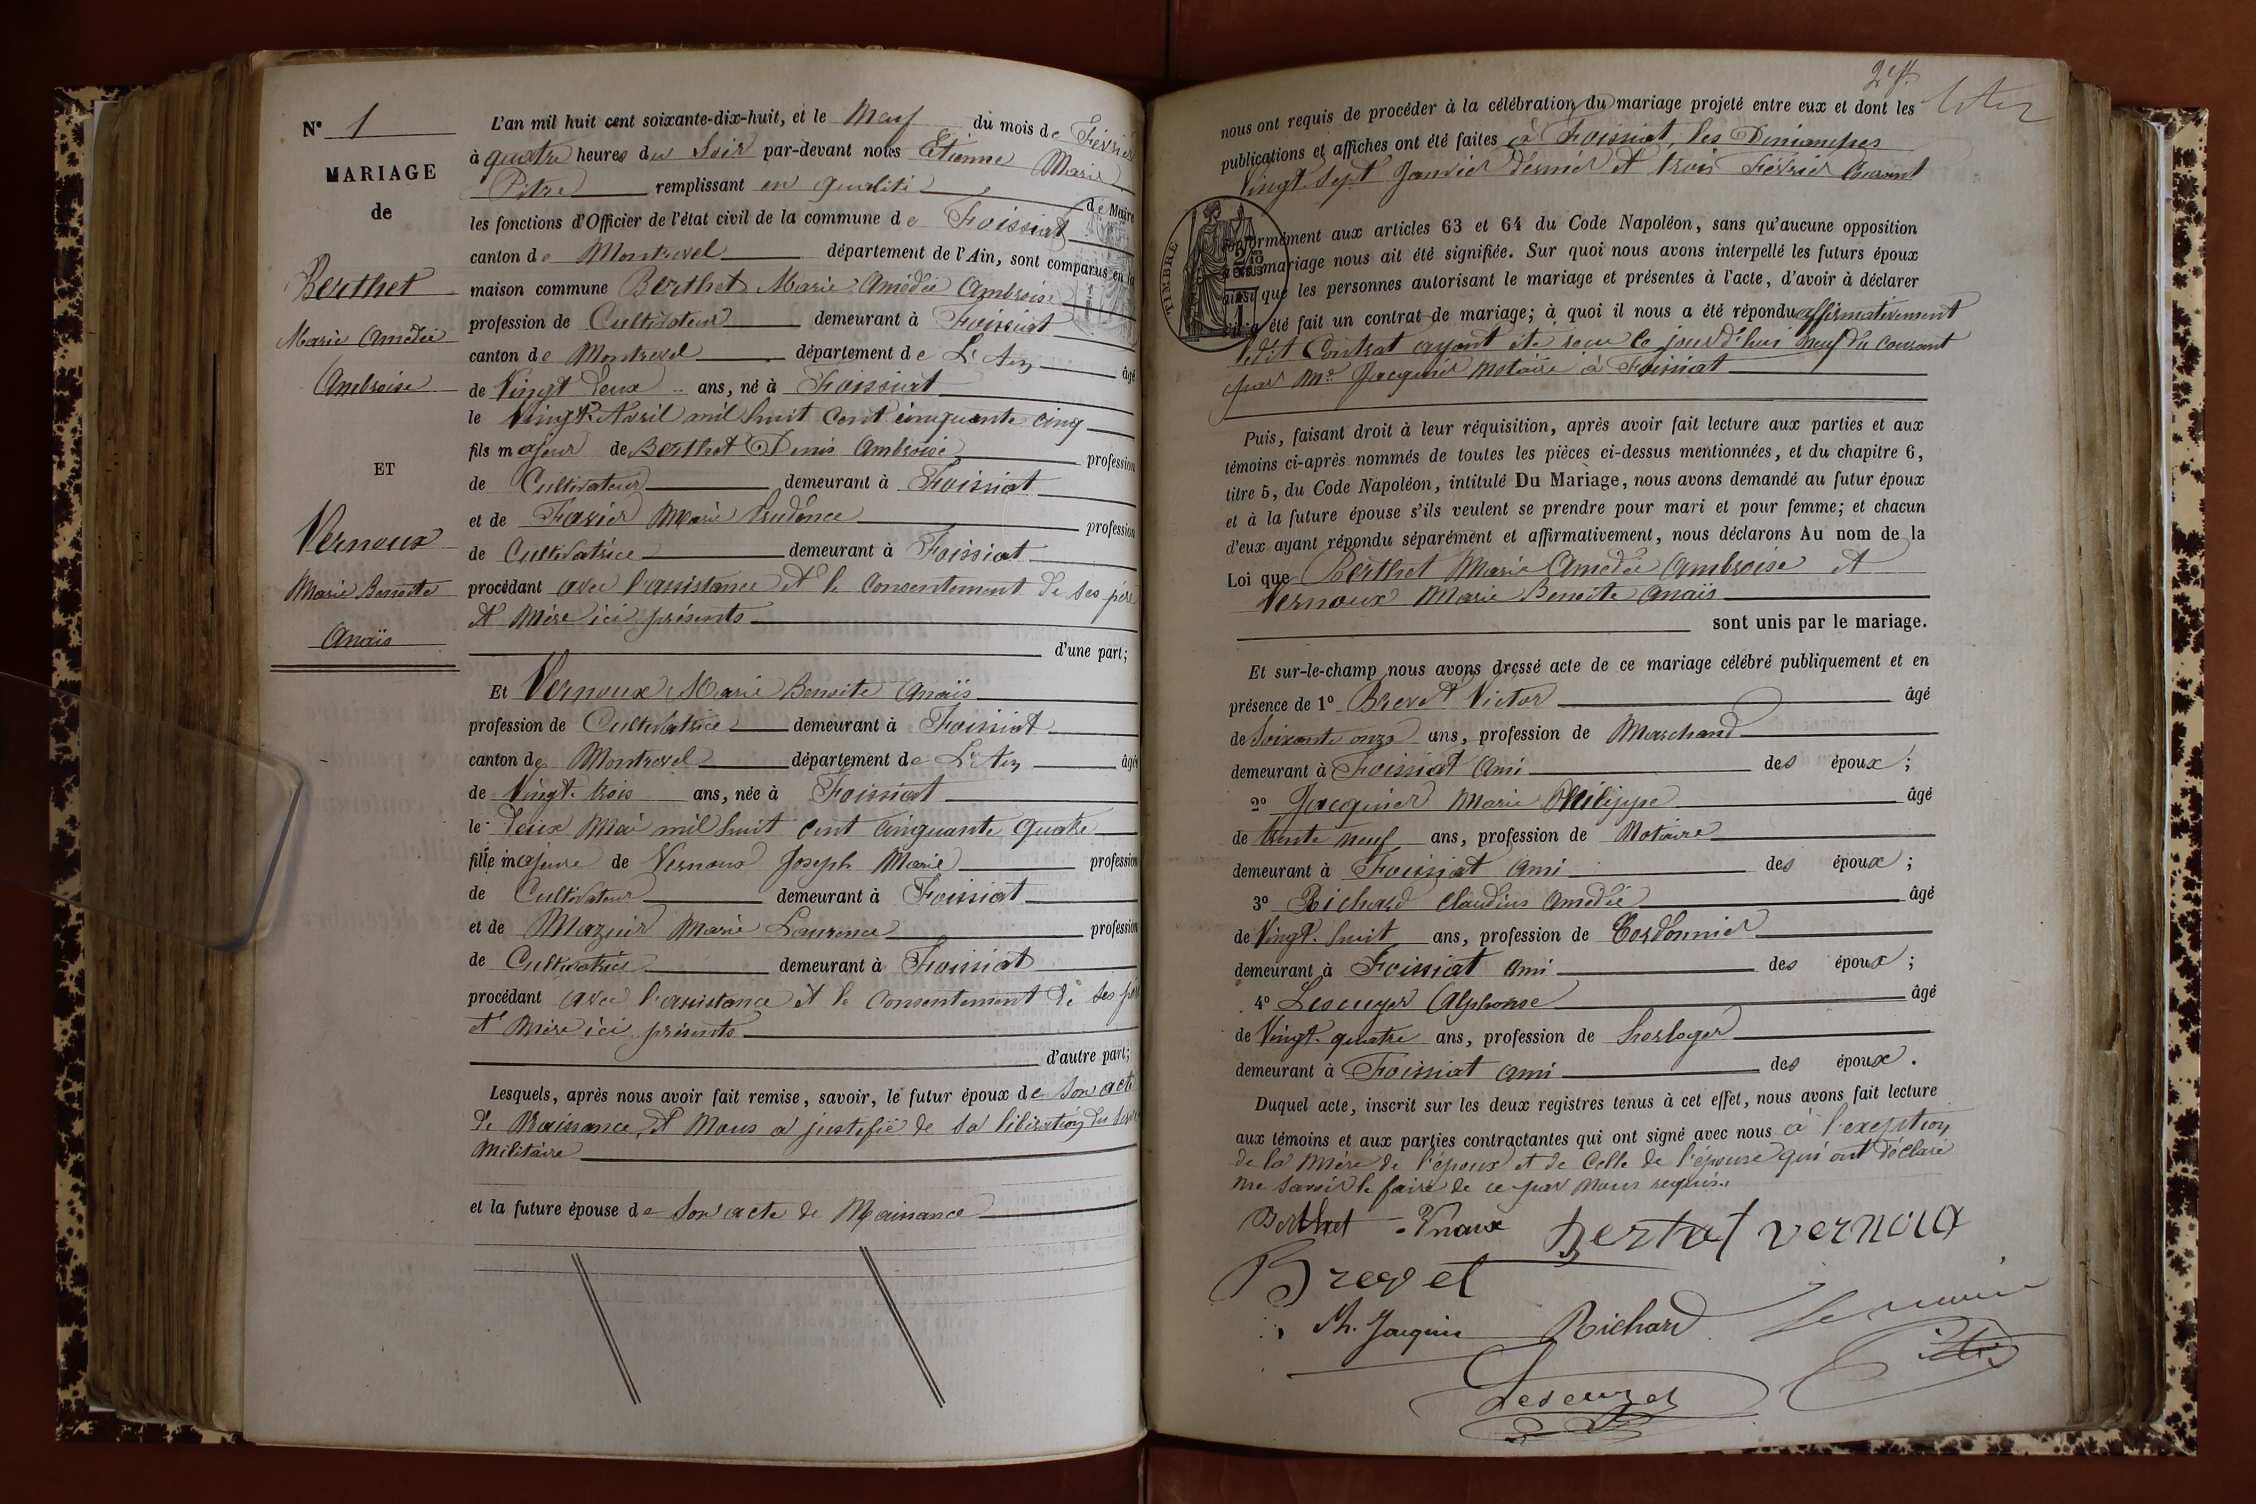 N° 1
MARIAGE
de
Berthet
Marie Amédée
Ambroise
ET
Vernoux
Marie Benoite
Anaïs
L'an mil huit cent soixante-dix-huit, et le Neuf du mois de Février
à quatre heures du Soir par-devant nous Etienne Marie
Pitre remplissant en qualité de Maire
les fonctions d'Officier de l'état civil de la commune de Foissiat
canton de Montrevel département de l'Ain, sont comparus en la
maison commune Berthet Marie Amédée Ambroise
profession de Cultivateur demeurant à Foissiat
canton de Montrevel département de L'Ain âgé
de Vingt deux ans, né à Foissiat
le Vingt Avril mil huit cent cinquante cinq
fils majeur de Berthet Denis Ambroise profession
de Cultivateur demeurant à Foissiat
et de Favier Marie Prudence profession
de Cultivatrice demeurant à Foissiat
procédant avec l'assistance et le consentement de ses père
et Mère ici présents
d'une part;
Et Vernoux Marie Benoite Anaïs
profession de Cultivatrice demeurant à Foissiat
canton de Montrevel département de L'Ain âgée
de Vingt trois ans, née à Foissiat
le deux Mai mil huit cent cinquante quatre
fille majeure de Vernoux Joseph Marie profession
de Cultivateur demeurant à Foissiat
et de Mazuir Marie Laurence profession
de Cultivatrice demeurant à Foissiat
procédant avec l'assistance et le consentement de ses père
et Mère ici présents
d'autre part;
Lesquels, après nous avoir fait remise, savoir, le futur époux de Son acte
de Naissance, et Nous a justifié de sa libération du service
Militaire
et la future épouse de Son acte de Naissance
nous ont requis de procéder à la célébration du mariage projeté entre eux et dont les
publications et affiches ont été faites à Foissiat, les Dimanches
Vingt Sept Janvier dernier et trois Février Courant
TIMBRE
conformément aux articles 63 et 64 du Code Napoléon, sans qu'aucune opposition
à ce mariage nous ait été signifiée. Sur quoi nous avons interpellé les futurs époux
ainsi que les personnes autorisant le mariage et présentes à l'acte, d'avoir à déclarer
s'il a été fait un contrat de mariage; à quoi il nous a été répondu affirmativement
ledit Contrat ayant été reçu ce jourd'hui neuf du courant
par Me Jacquier Notaire à Foissiat
Puis, faisant droit à leur réquisition, après avoir fait lecture aux parties et aux
témoins ci-après nommés de toutes les pièces ci-dessus mentionnées, et du chapitre 6,
titre 5, du Code Napoléon, intitulé Du Mariage, nous avons demandé au futur époux
et à la future épouse s'ils veulent se prendre pour mari et pour femme; et chacun
d'eux ayant répondu séparément et affirmativement, nous déclarons Au nom de la
Loi que Berthet Marie Amédée Ambroise et
Vernoux Marie Benoite Anaïs
sont unis par le mariage.
Et sur-le-champ nous avons dressé acte de ce mariage célébré publiquement et en
présence de 1° Brevet Victor âgé
de Soixante onze ans, profession de Marchand
demeurant à Foissiat ami des époux;
2° Jacquier Marie Philippe âgé
de trente neuf ans, profession de Notaire
demeurant à Foissiat ami des époux;
3° Richard Claudius Amédée âgé
de Vingt-huit ans, profession de Cordonnier
demeurant à Foissiat ami des époux;
4° Lescuyer Alphonse âgé
de Vingt-quatre ans, profession de horloger
demeurant à Foissiat ami des époux.
Duquel acte, inscrit sur les deux registres tenus à cet effet, nous avons fait lecture
aux témoins et aux parties contractantes qui ont signé avec nous à l'exception
de la Mère de l'époux et de Celle de l'épouse qui ont déclaré
ne savoir le faire de ce par Nous requises
Berthet Bertet vernoux
Brevet
Ph. Jacquier Richard Le maire
Lescuyer Pitre